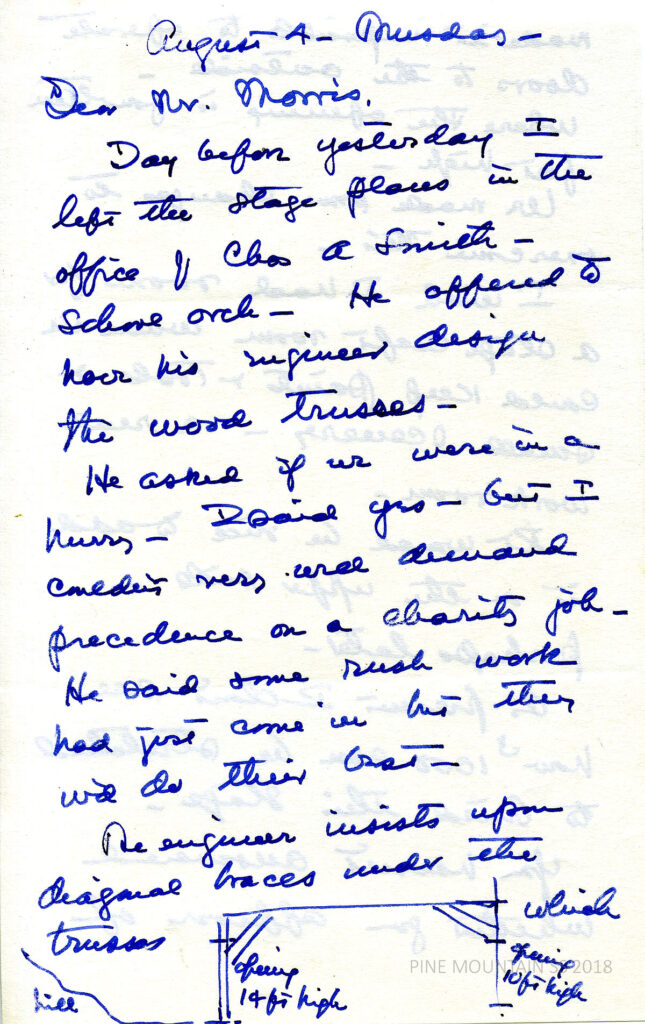 August 4 – Thursday –
Dear Mr. Morris.
Day before yesterday I
left the stage plans in the
office of Chas A Smith –
School arch – He offered to
have his engineer design
the wood trusses –
He asked if we were in a
hurry – I said yes – but I
couldn't very well demand
precedence on a charity job –
He said some rush work
had just come in but they
wd do their best –
The engineer insists upon
diagonal braces under the
trusses which
hill
opening
14 ft high
opening
10 ft high
PINE MOUNTAIN SS 2018